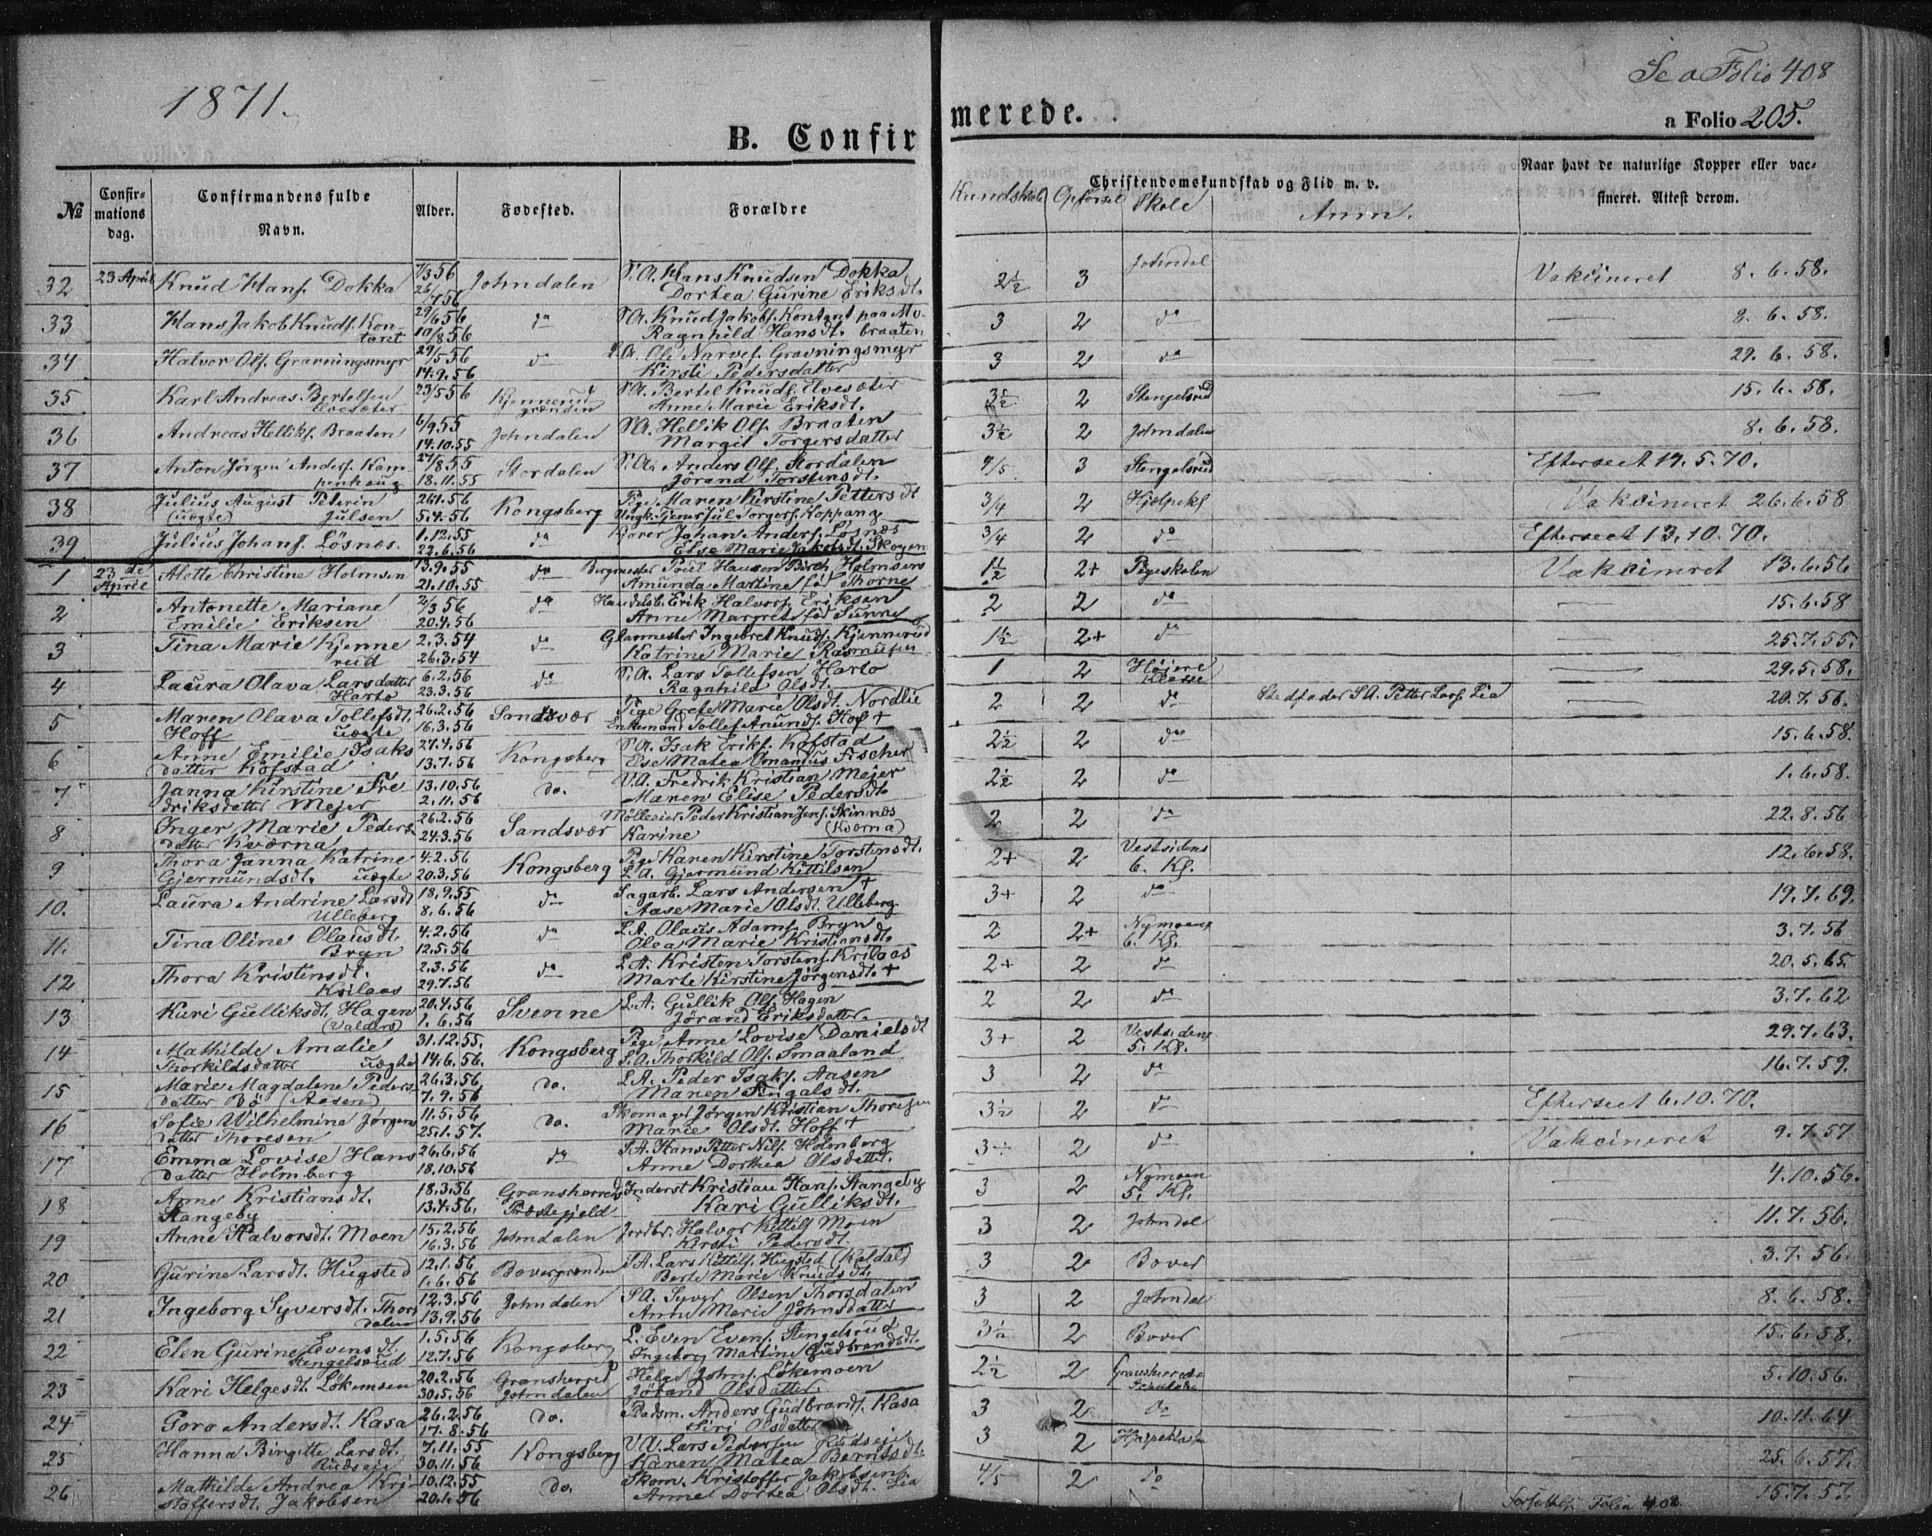 1871.
Se a Folio 408
B. Confirmerede.
a Folio 205.
№
Confirmations dag.
Confirmandens fulde Navn.
Alder.
Fødested.
Forældre
Christendomskundskab og Flid m. v.
Kundskab Opførsel Skole Anm.
Naar havt de naturlige Kopper eller vacsineret. Attest derom.
32 23 April Knud Hans. Dokka 7/3 56 26/ 7 56 Johndalen S.A. Hans Knudsen Dokka Dortea Gurine Eriksdt. 2½ 3 Johndal Vakcineret 8.6.58.
33 Hans Jakob Knuds. Kontant 29/6 56 10/8 56 do S.A. Knud Jakobs. Kontant paa Mo- Ragnhild Hansdt. braaten 3 2 do — 8.6.58.
34 Halvor Ols. Gravningsmyr 29/5 56 14.9.56 do S.A. Ole Narves. Gravningsmyr Kirsti Pedersdatter 3 2 do — 29.6.58.
35 Karl Andreas Bertelsen Elvesæter 23/5 56 Kjennerud grændsen S.A. Bertel Knuds. Elvesæter Anne Marie Eriksdt. 3½ 2 Stengelsrud — 15.6.58.
36 Andreas Helliks. Braaten 6/9 55 14.10.55 Johndalen S.A. Hellik Ols. Braaten Margit Torgersdatter 3½ 2 Johndalen — 8.6.58.
37 Anton Jörgen Anders. Kampenhaug 27/8 55 18.11.55 Stordalen S.A. Anders Ols. Stordalen Jörand Torstensdt. 4/5 3 Stengelsrud Efterseet 19.5.70.
38 Julius August Peterin (uægte) Julsen 26.1.56 5.4.56 Kongsberg Pige Maren Kirstine Pettersdt Ungk. Tjener Jul Torgers. Koppang 3/4 2 Hjelpekl Vakcineret 26.6.58
39 Julius Johans. Lösnæs. 1.12.55 22.6.56 do Borer Johan Anders. Losnæs Else Marie Jakobsdt. Skogen 3/4 2 do Efterseet 13.10.70.
1 23de April Alette Christine Holmsen 13.9.55 21.10.55 do Bergmester Poul Hansen Birch Holmsens Amunda Martine fød Thorne 1½ 2+ Pigeskolen Vakcineret 13.6.56
2 Antonette Mariane Emilie Eriksen 2/3 56 20.4.56 do Handelsb. Erik Halvors. Eriksen Anne Margrete fød Sunne 2 2 do — 15.6.58
3 Tina Marie Kjennerud 2.3.54 26.3.54 do Glarmester Ingebret Knuds. Kjennerud Katrine Marie Rasmusen 1½ 2+ do — 25.7.55.
4 Laura Olava Larsdatter Harto 6.2.56 23.3.56 do S.A. Lars Tollefsen Harto Ragnhild Olsdt. 1 2 Høiere Klasse — 29.5.58.
5 Maren Olava Tollefsdt. Hoff uægte 26.2.56 16.3.56 Sandsvær Pige Grete Marie Olsdt. Nordlie Enkemand Tollef Anunds. Hof + 2 2 do Stedfader S.A. Petter Lars. Lia — 20.7.56.
6 Anne Emilie Isaksdatter Kofstad 27.4.56 13.7.56 Kongsberg S.A. Isak Eriks. Kofstad Else Matea Fischer 2½ 2 do — 15.6.58.
7 Janna Kirstine Fredriksdatter Mejer 13.10.56 2.11.56 do. V.A. Fredrik Kristian Mejer Maren Elise Pedersdt 2½ 2 do — 1.6.58.
8 Inger Marie Pedersdatter Kværna 26.2.56 24.3.56 Sandsvær Möllerier Peder Kristian Jens. Skinnæs Karine (Kværna) 2 2 do — 22.8.56
9 Thora Janna Katrine Gjermundsdt. uægte 4.2.56 20.3.56 Kongsberg Pige Karen Kirstine Torstensdt. S.A. Gjermund Kittilsen 2+ 2 Vestsidens 6. Kl. — 12.6.58.
10. Laura Andrine Larsdt Ulleberg 18.9.55 8.6.56 do Sagarb. Lars Andersen + Aase Marie Olsdt. Ulleberg 3+ 2 do — 19.7.69.
11. Tina Oline Olausdt. Bryn 4.2.56 12.5.56 do L.A. Olaus Adams. Bryn Olea Marie Kristiansdt. 2 2+ Nymoens 6. Kl. — 3.7.56
12 Thora Kristensdt. Krilaas 2.3.56 29.7.56 do L.A. Kristen Torstens. Krilaas Marte Kirstine Jörgensdt. + 2+ 2 do — 20.5.65.
13 Kari Gulliksdt. Hagen (Valders) 20.4.56 1.6.56 Svenne L.A. Gullik Ols. Hagen Jörand Eriksdatter. 2 2 do — 3.7.62
14 Mathilde Amalie Thorkildsdatter Uægte 31.12.55. 14.6.56. Kongsberg Pige Anne Lovise Danielsdt S.A. Thorkild Ols. Smaaland 3+ 2 Vestsidens 5. Kl. — 29.7.63.
15 Marie Magdalene Pedersdatter Bö (Aasen) 26.3.56 7.9.56 do. L.A. Peder Isaks. Aasen Maren Fingalsdt. 3 2 do — 16.7.59.
16 Sofie Wilhelmine Jörgendatter Thoresen 11.5.56 25.1.57. do. Skomager Jörgen Kristian Thoresen Marie Olsdt. Hoff + 3½ 2 do Efterseet 6.10.70.
17 Emma Lovise Hansdatter Holmberg 26.6.56 18.10.56 do S.A. Hans Petter Nils. Holmberg Anne Dorthea Olsdatter. 3÷ 2 do Vakcineret 9.7.57
18 Anne Kristiansdt. Stangeby 18.3.56 13.4.56. Gransherred Præstegjeld Inderst Kristian Hans. Stangeby Kari Gulliksdt. 3 2 Nymoen 5. Kl. — 4.10.56.
19 Anne Halvorsdt. Moen 15.2.56 16.3.56 Johndalen Jordbr. Halvor Kittils. Moen Kirsti Pedersdt. 3 2 Johndal — 11.7.56.
20 Gurine Larsdt. Hugsted 12.1.56 1.6.56 Bovergrænden S.A. Lars Kittils. Hugsted (Kaldal) Berte Marie Knudsdt. 3 2 Bover — 3.7.56.
21 Ingeborg Syversdt. Thorsdalen 12.3.56 13.9.56 Johndalen S.A. Syver Olsen Thorsdalen Anne Marie Johnsdatter 3 2 Johndal — 8.6.58.
22 Elen Gurine Evensdt. Stengelsrud 1.5.56 12.7.56 Kongsberg L. Even Evens. Stengelsrud Ingeborg Martine Gudbrandsdt. 3½ 2 Bover — 15.6.58.
23 Kari Helgesdt. Lökemoen 20.2.56 30.5.56 Gransherred Johndalen Helge Johns. Lökemoen Jörand Olsdatter. 2½ 2 Gransherred — 5.10.56.
24 Goro Andersdt. Kasa 26.2.56 17.8.56 do. Pladsm. Anders Gudbrandt. Kasa Siri Olsdatter 3 2 do — 10.11.64
25 Hanna Birgitte Larsdt. Rudseie 7.11.55 30.11.56 Kongsberg V.A. Lars Pedersen Rudsejet Karen Matea Berntsdt. 3 2 — 25.6.57.
26 Mathilde Andrea Kristoffersdt. Jakobsen 10.12.55 20.1.56 do. Skom. Kristoffer Jakobsen Anne Dortea Olsdt. Lia 4/5 2 do — 15.7.57.
Forsættes Folio 402